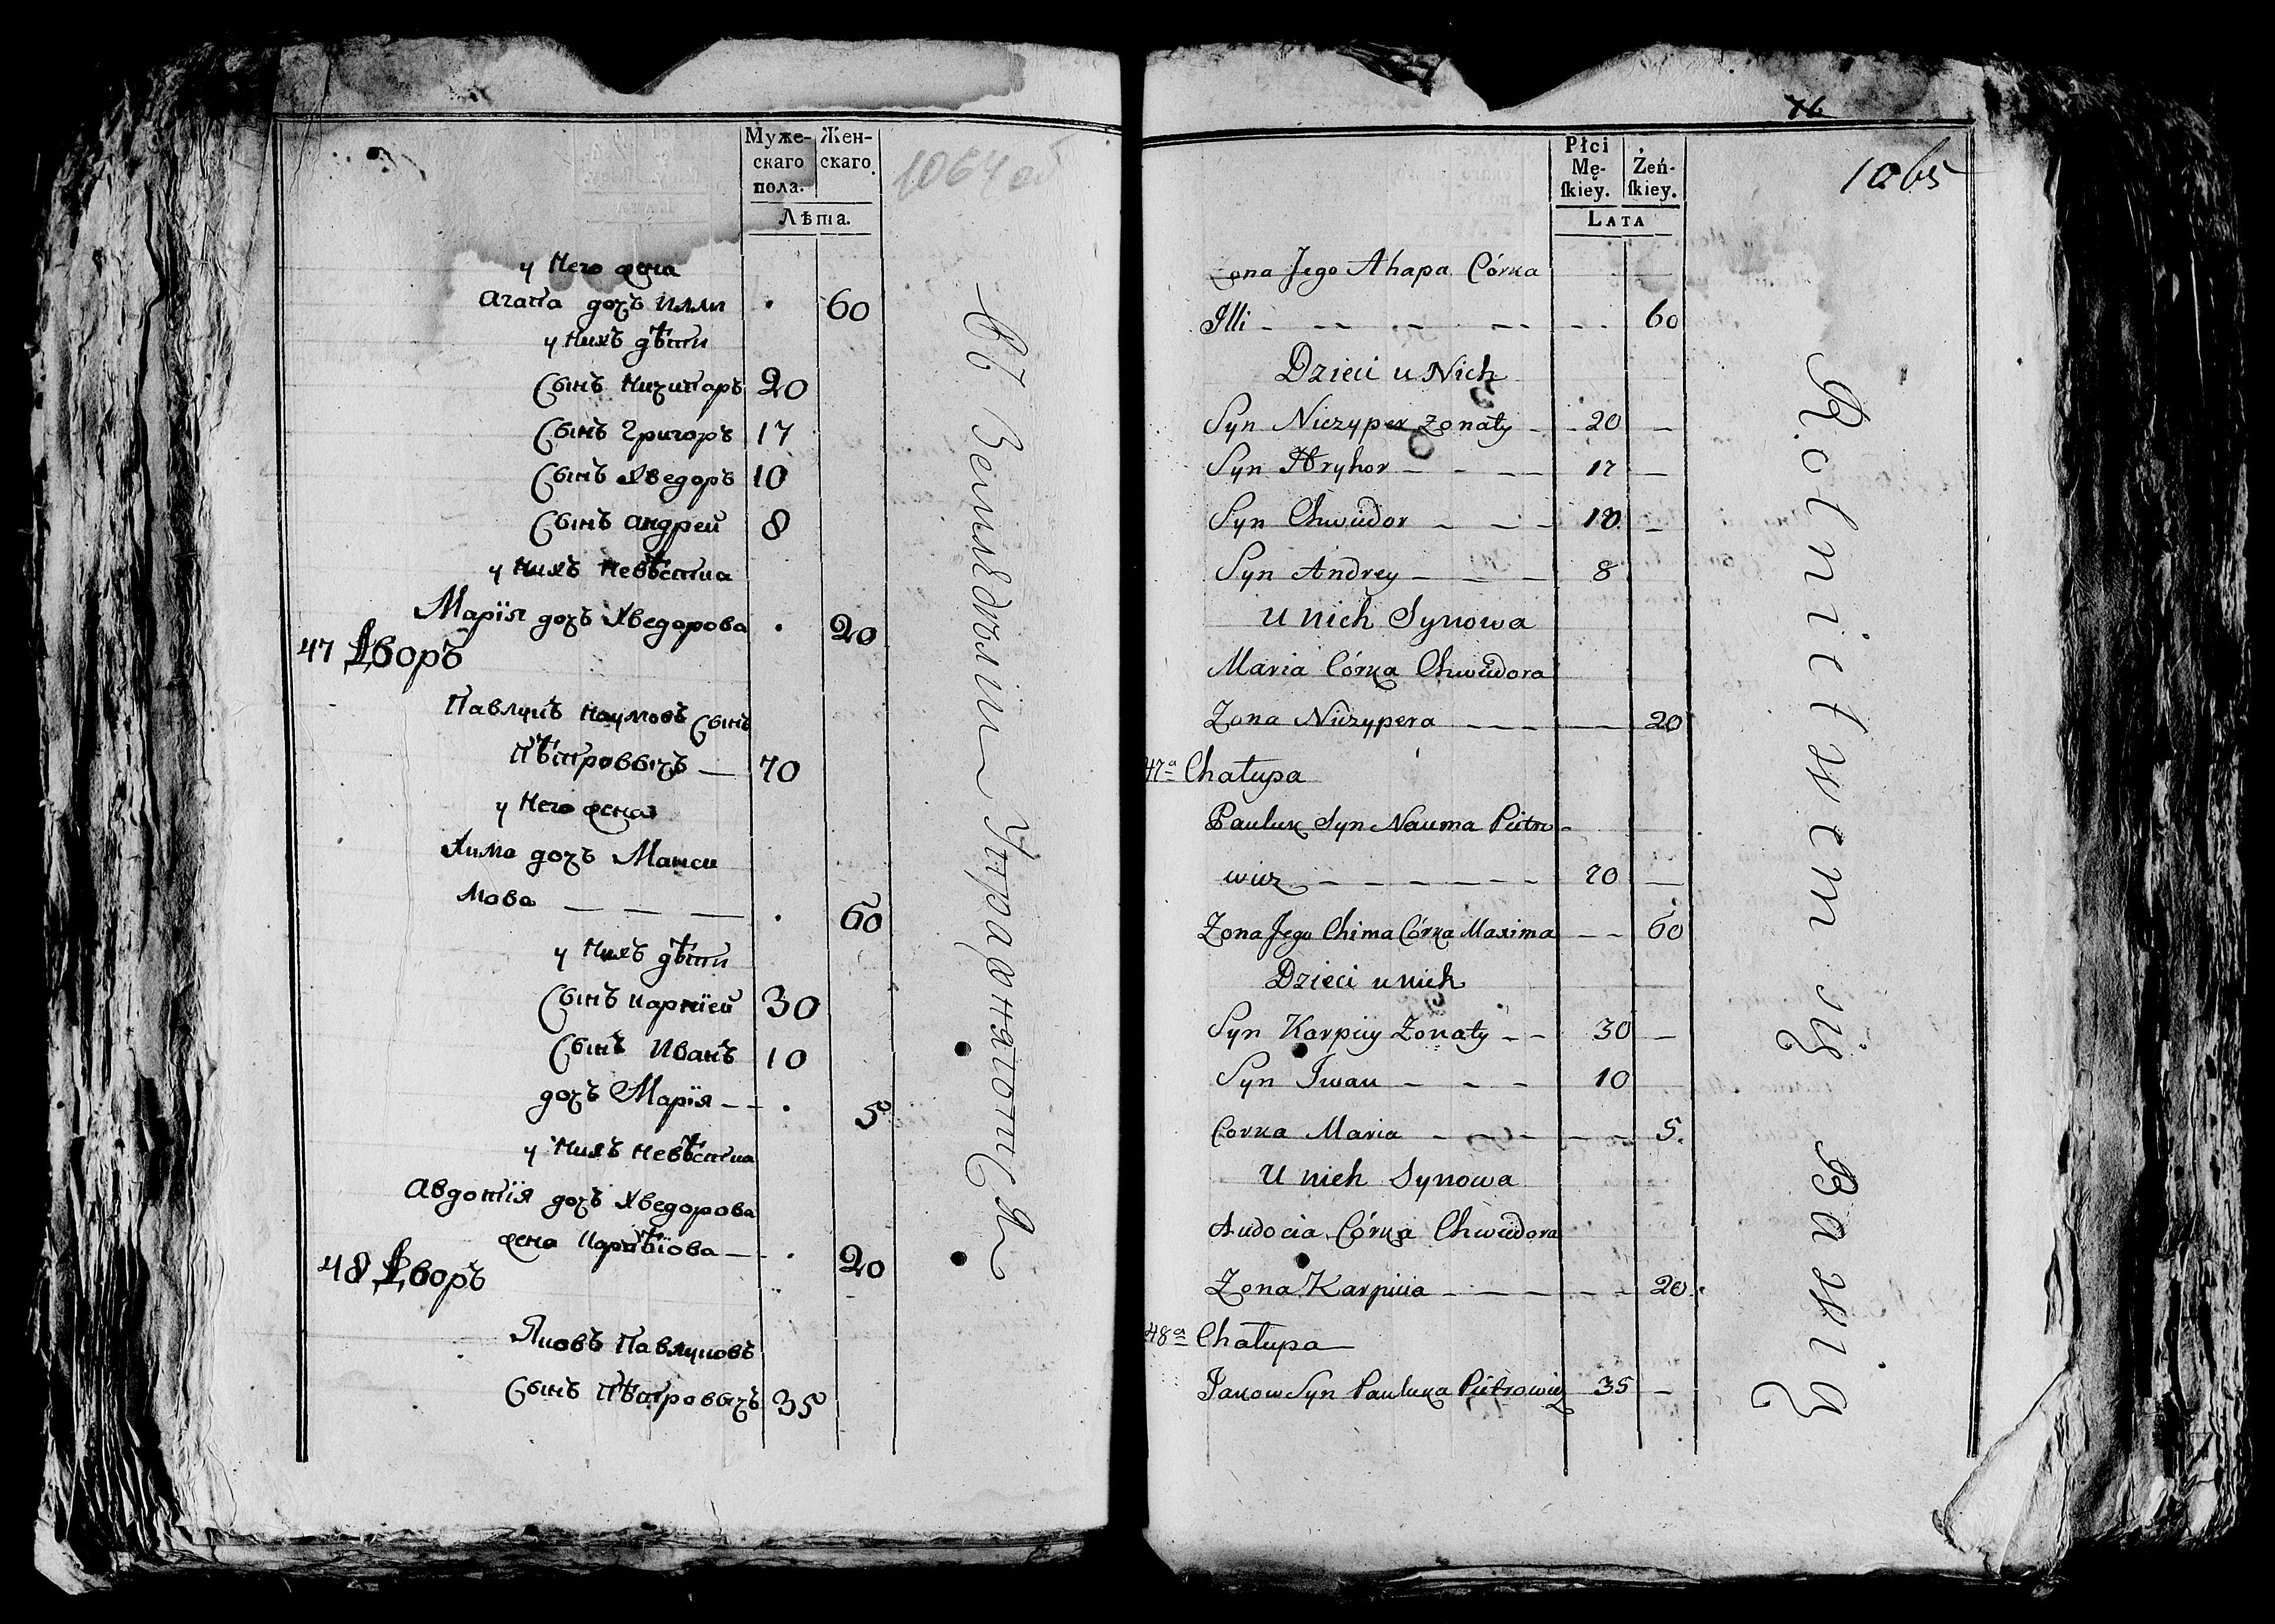 Муже-
скаго
пола.
Жен-
скаго.
Лѣта.
1064 об
у него жена
Агапа дочъ Илли . 60
у нихъ дѣти
Сынъ Ничипоръ 20
Сынъ Григоръ 17
Сынъ Хведоръ 10
Сынъ Андрей 8
у нихъ невѣстка
Марїя дочъ Хведорова . 20
47 Дворъ
Павлукъ Наумовъ Сынъ
Пѣтровичъ — 70
у него жена
Хима дочъ Макси
мова — — — . 60
у нихъ дѣти
Сынъ Карпїей 30
Сынъ Иванъ 10
дочъ Марїя - - . 5
у нихъ невѣстка
Авдотїя дочъ Хведорова
жена Карпѣїова — . 20
48 Дворъ
Яковъ Павлуковъ
Сынъ Пѣтровичъ 35
Въ Земледѣлїи Упражняютца
76
1065
Płci
Mę-
ſkiey.
Żeń-
ſkiey.
LATA
Zona Jego Ahapa Córka
Illi - - - - - - - 60
Dzieci u Nich
Syn Niczyper Zonaty - - 20 -
Syn Hryhor - - - 17 -
Syn Chwiedor - - - 10 -
Syn Andrey - - - 8
U nich Synowa
Maria Córka Chwiedora
Zona Niczypera - - - - 20
47a Chałupa
Pauluk Syn Nauma Pietro-
wicz - - - - - - 70 -
Zona Jego Chima Córka Maxima - - 60
Dzieci u nich
Syn Karpiey Zonaty - - 30 -
Syn Iwan - - - 10
Corka Maria - - - - - 5.
U nich Synowa
Audocia Córka Chwiedora
Zona Karpieia - - - - - 20.
48a Chałupa
Jakow Syn Pauluka Pietrowicz 35 -
Rolnictwem się Bawią